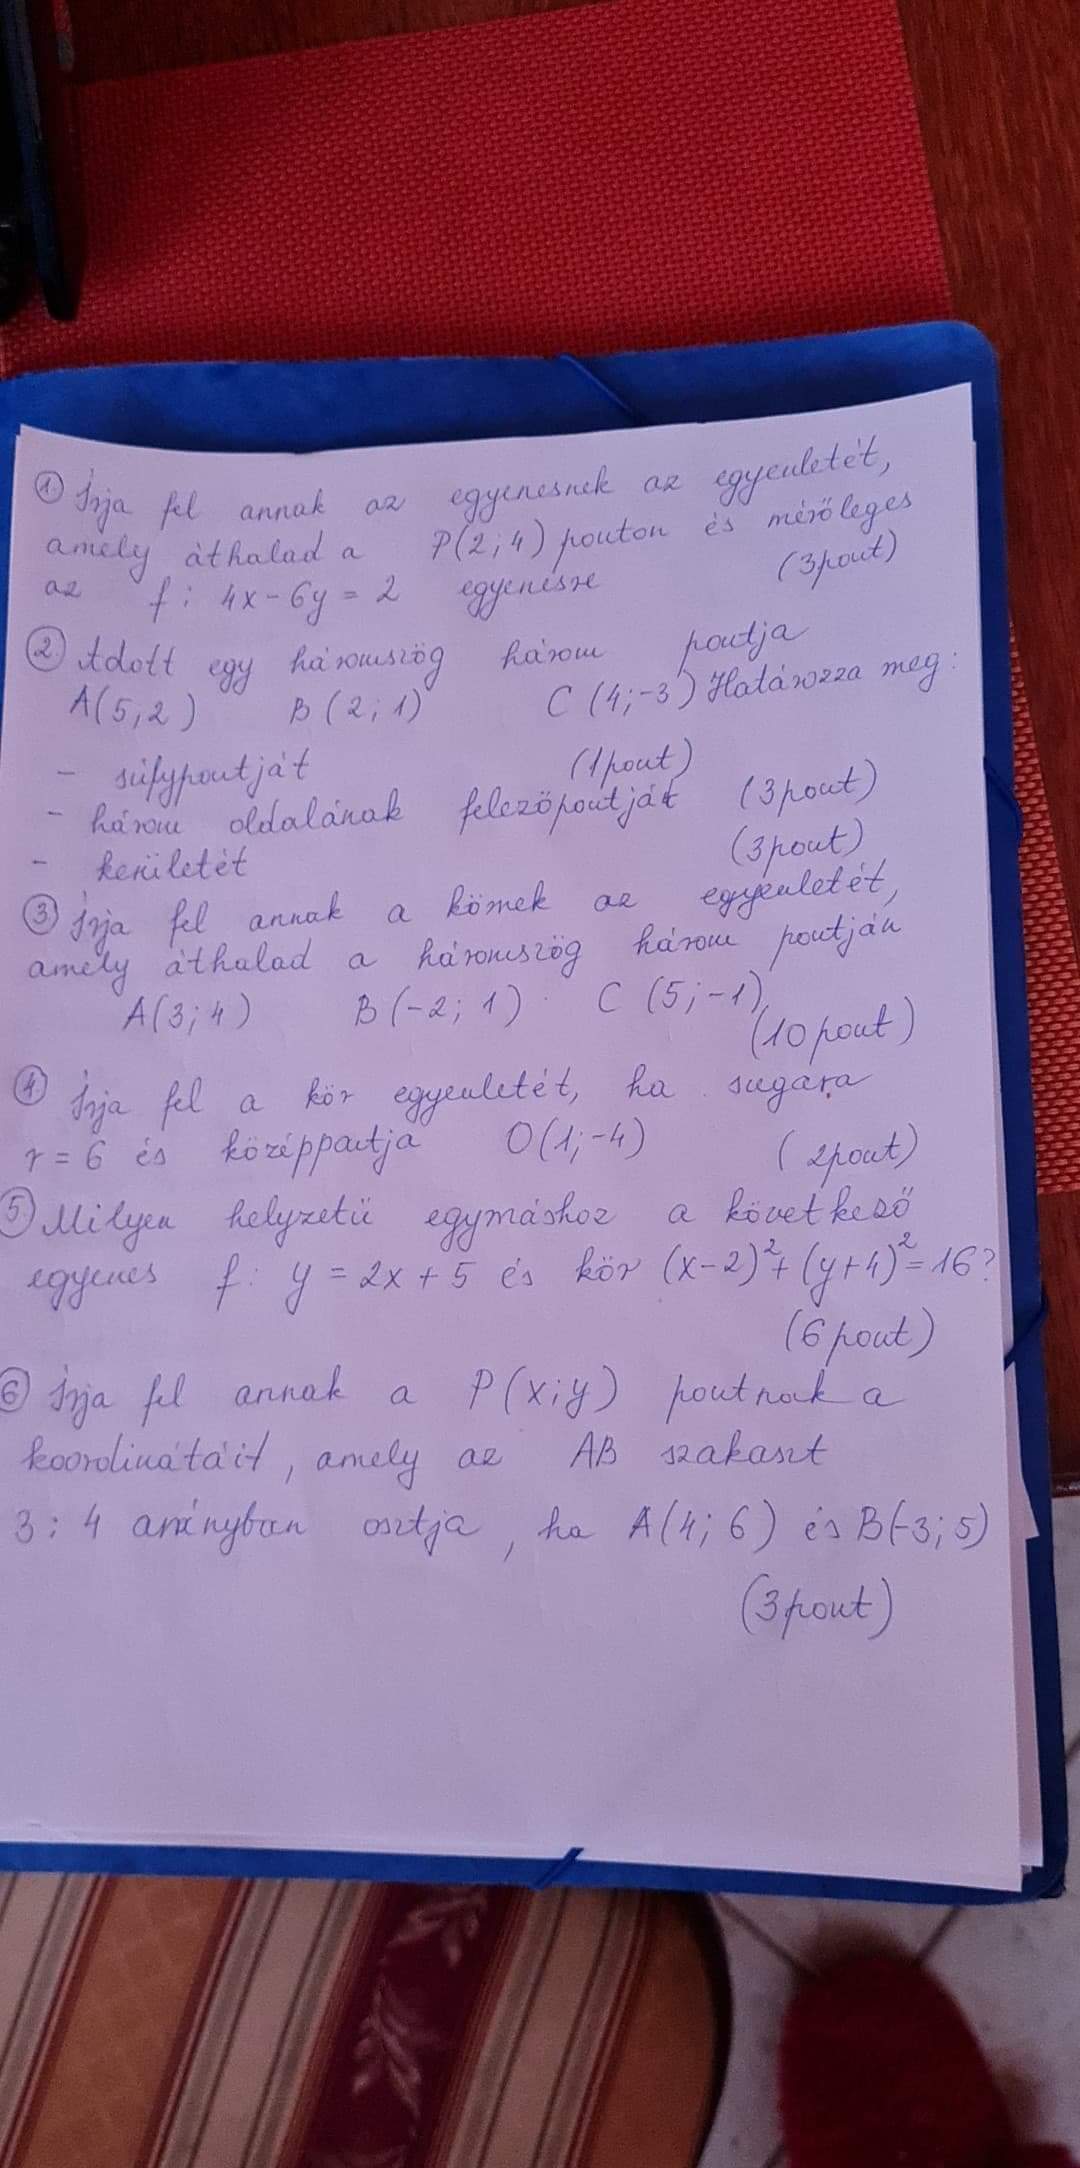 1. Írja fel annak az egyenesnek az egyenletét,
amely áthalad a P(2;4) ponton és mérőleges
az f: 4x-6y=2 egyenesre (3pont)
2. Adott egy háromszög három pontja
A(5;2) B(2;1) C(4;-3) Határozza meg:
- súlypontját (1pont)
- három oldalának felezőpontját (3pont)
- kerületét (3pont)
3. Írja fel annak a körnek az egyenletét,
amely áthalad a háromszög három pontján
A(3;4) B(-2;1) C(5;-1)
(10pont)
4. Írja fel a kör egyenletét, ha sugara
r=6 és középpontja O(1;-4) (2pont)
5. Milyen helyzetű egymáshoz a következő
egyenes f: y=2x+5 és kör (x-2)²+(y+4)²=16?
(6pont)
6. Írja fel annak a P(x;y) pontnak a
koordinátáit, amely az AB szakaszt
3:4 arányban osztja, ha A(4;6) és B(-3;5)
(3pont)